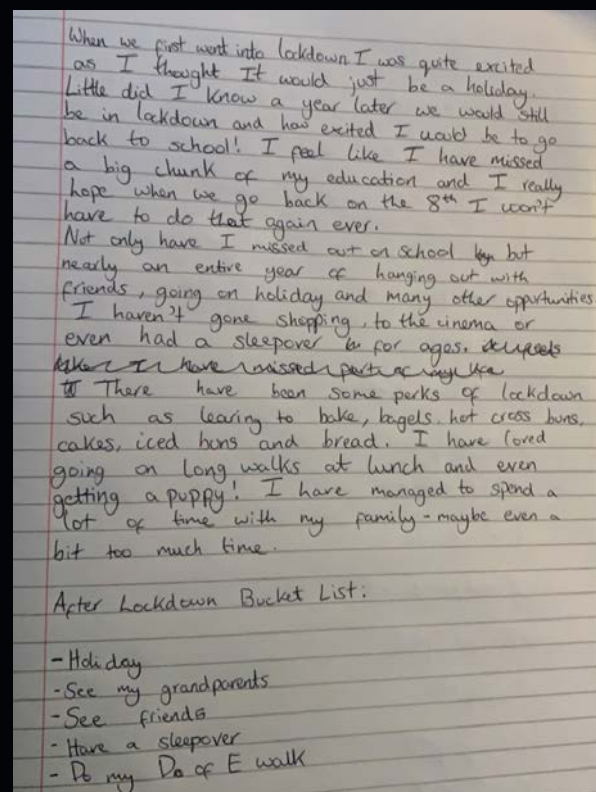 When we first went into lockdown I was quite excited
as I thought It would just be a holiday.
Little did I know a year later we would still
be in lockdown and how excited I would be to go
back to school! I feel like I have missed
a big chunk of my education and I really
hope when we go back on the 8th I won't
have to do that again ever.
Not only have I missed out on school but
nearly an entire year of hanging out with
friends, going on holiday and many other opportunities.
I haven't gone shopping, to the cinema or
even had a sleepover for ages.
I have missed part of my life
There have been some perks of lockdown
such as learing to bake, bagels, hot cross buns,
cakes, iced buns and bread. I have loved
going on long walks at lunch and even
getting a puppy! I have managed to spend a
lot of time with my family - maybe even a
bit too much time.
After Lockdown Bucket List:
- Holiday
- See my grandparents
- See friends
- Have a sleepover
- Do my D of E walk